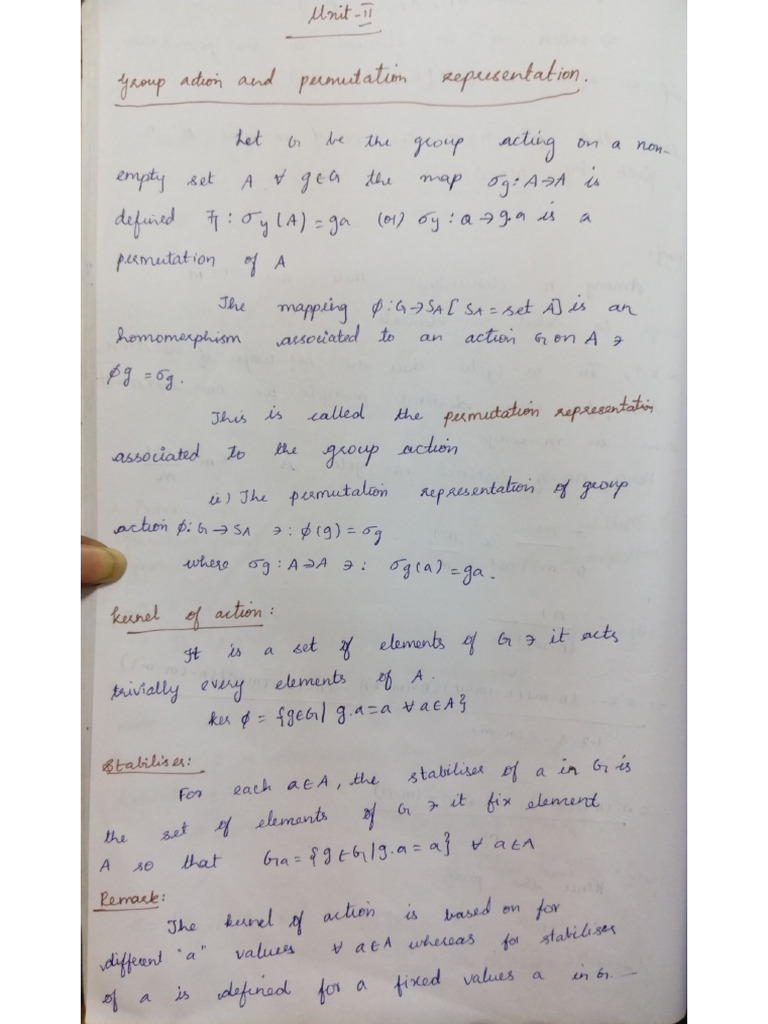 Unit-II
Group action and permutation representation.
Let G be the group acting on a non-
empty set A ∀ g∈G the map σg: A→A is
defined ∋: σg(A) = ga (or) σg: a→g.a is a
permutation of A
The mapping ϕ: G→SA [SA = set A] is an
homomorphism associated to an action G on A ∋
ϕg = σg.
This is called the permutation representation
associated to the group action
ii) The permutation representation of group
action ϕ: G→SA ∋: ϕ(g) = σg
where σg: A→A ∋: σg(a) = ga.
Kernel of action:
It is a set of elements of G ∋ it acts
trivially every elements of A.
ker ϕ = {g∈G| g.a=a ∀ a∈A}
Stabiliser:
For each a∈A, the stabiliser of a in G is
the set of elements of G ∋ it fix element
A so that Ga = {g∈G|g.a = a} ∀ a∈A
Remark:
The kernel of action is based on for
different "a" values ∀ a∈A whereas for stabiliser
of a is defined for a fixed values a in G.